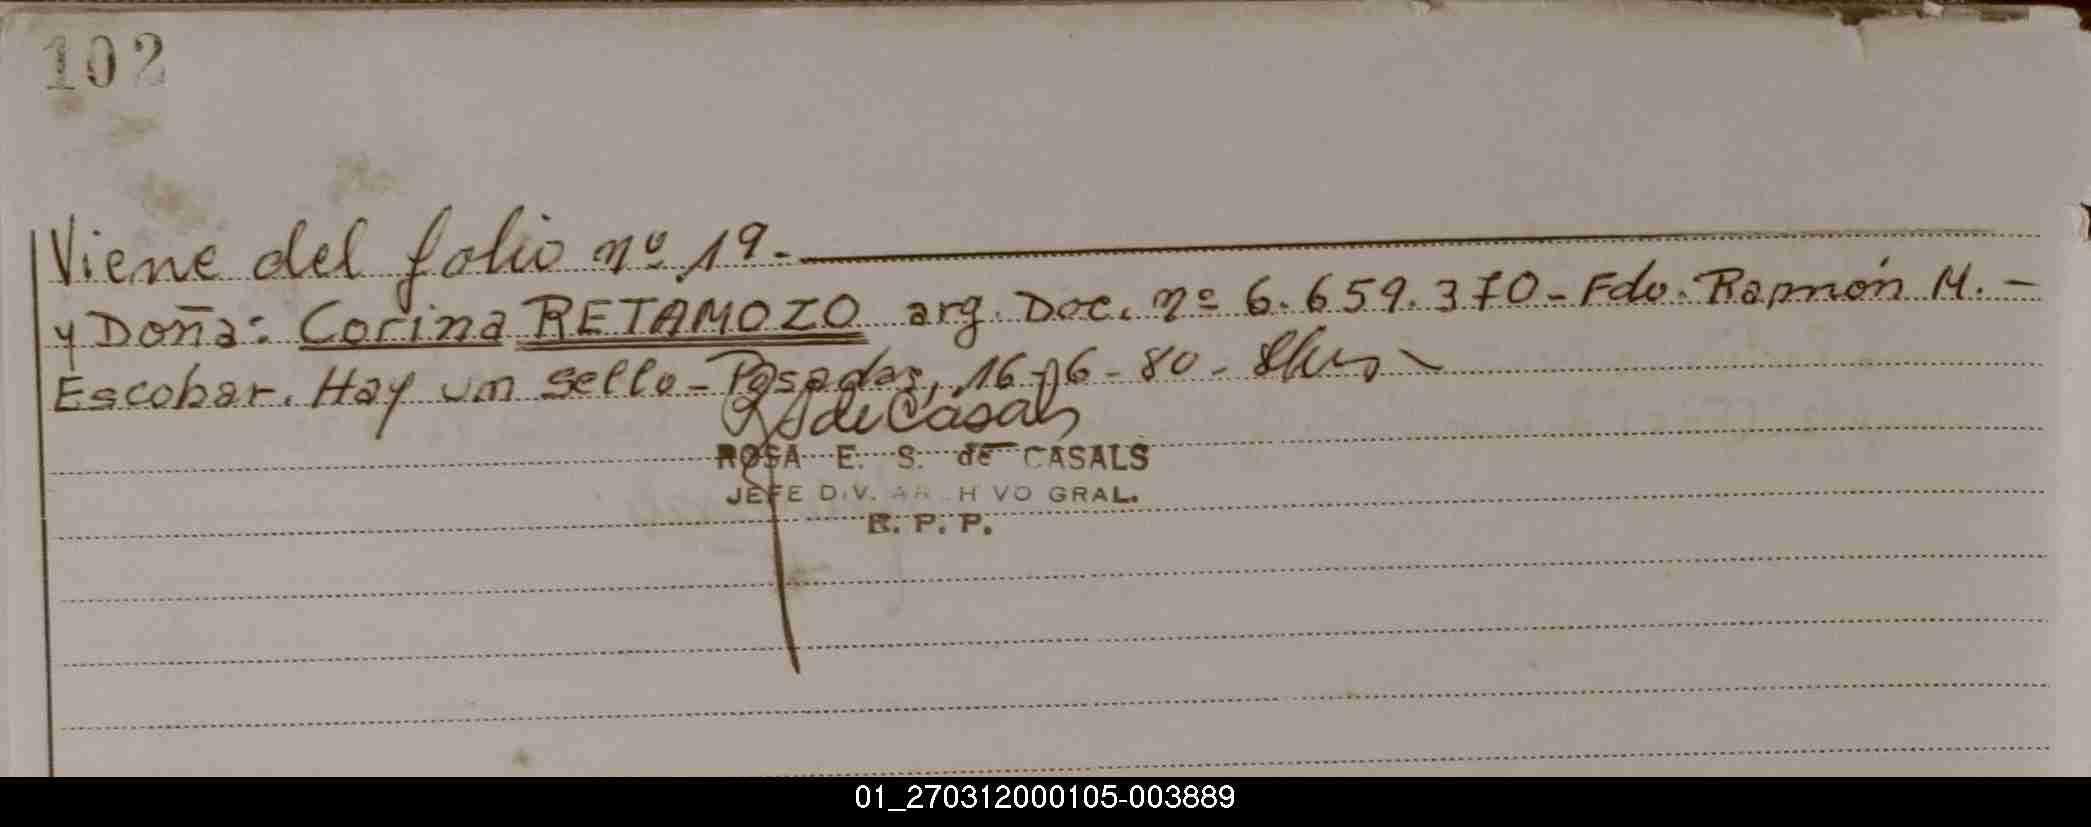 102
Viene del folio nº 19.-
y Doña: Corina RETAMOZO arg. Doc. nº 6.659.370- Fdo. Ramón M. -
Escobar. Hay un sello- Posadas, 16-06-80-
de Casals
ROSA E. S. de CASALS
JEFE DIV. ARCHIVO GRAL.
R. P. P.
01_270312000105-003889